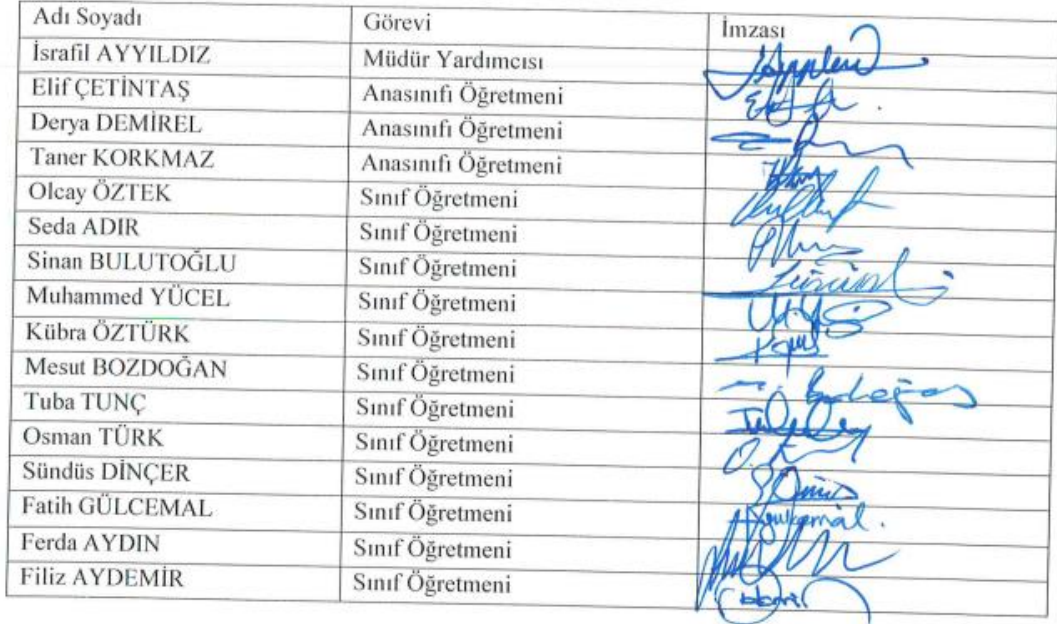 Adı Soyadı Görevi İmzası
İsrafil AYYILDIZ Müdür Yardımcısı
Elif ÇETİNTAŞ Anasınıfı Öğretmeni
Derya DEMİREL Anasınıfı Öğretmeni
Taner KORKMAZ Anasınıfı Öğretmeni
Olcay ÖZTEK Sınıf Öğretmeni
Seda ADIR Sınıf Öğretmeni
Sinan BULUTOĞLU Sınıf Öğretmeni
Muhammed YÜCEL Sınıf Öğretmeni
Kübra ÖZTÜRK Sınıf Öğretmeni
Mesut BOZDOĞAN Sınıf Öğretmeni
Tuba TUNÇ Sınıf Öğretmeni
Osman TÜRK Sınıf Öğretmeni
Sündüs DİNÇER Sınıf Öğretmeni
Fatih GÜLCEMAL Sınıf Öğretmeni
Ferda AYDIN Sınıf Öğretmeni
Filiz AYDEMİR Sınıf Öğretmeni